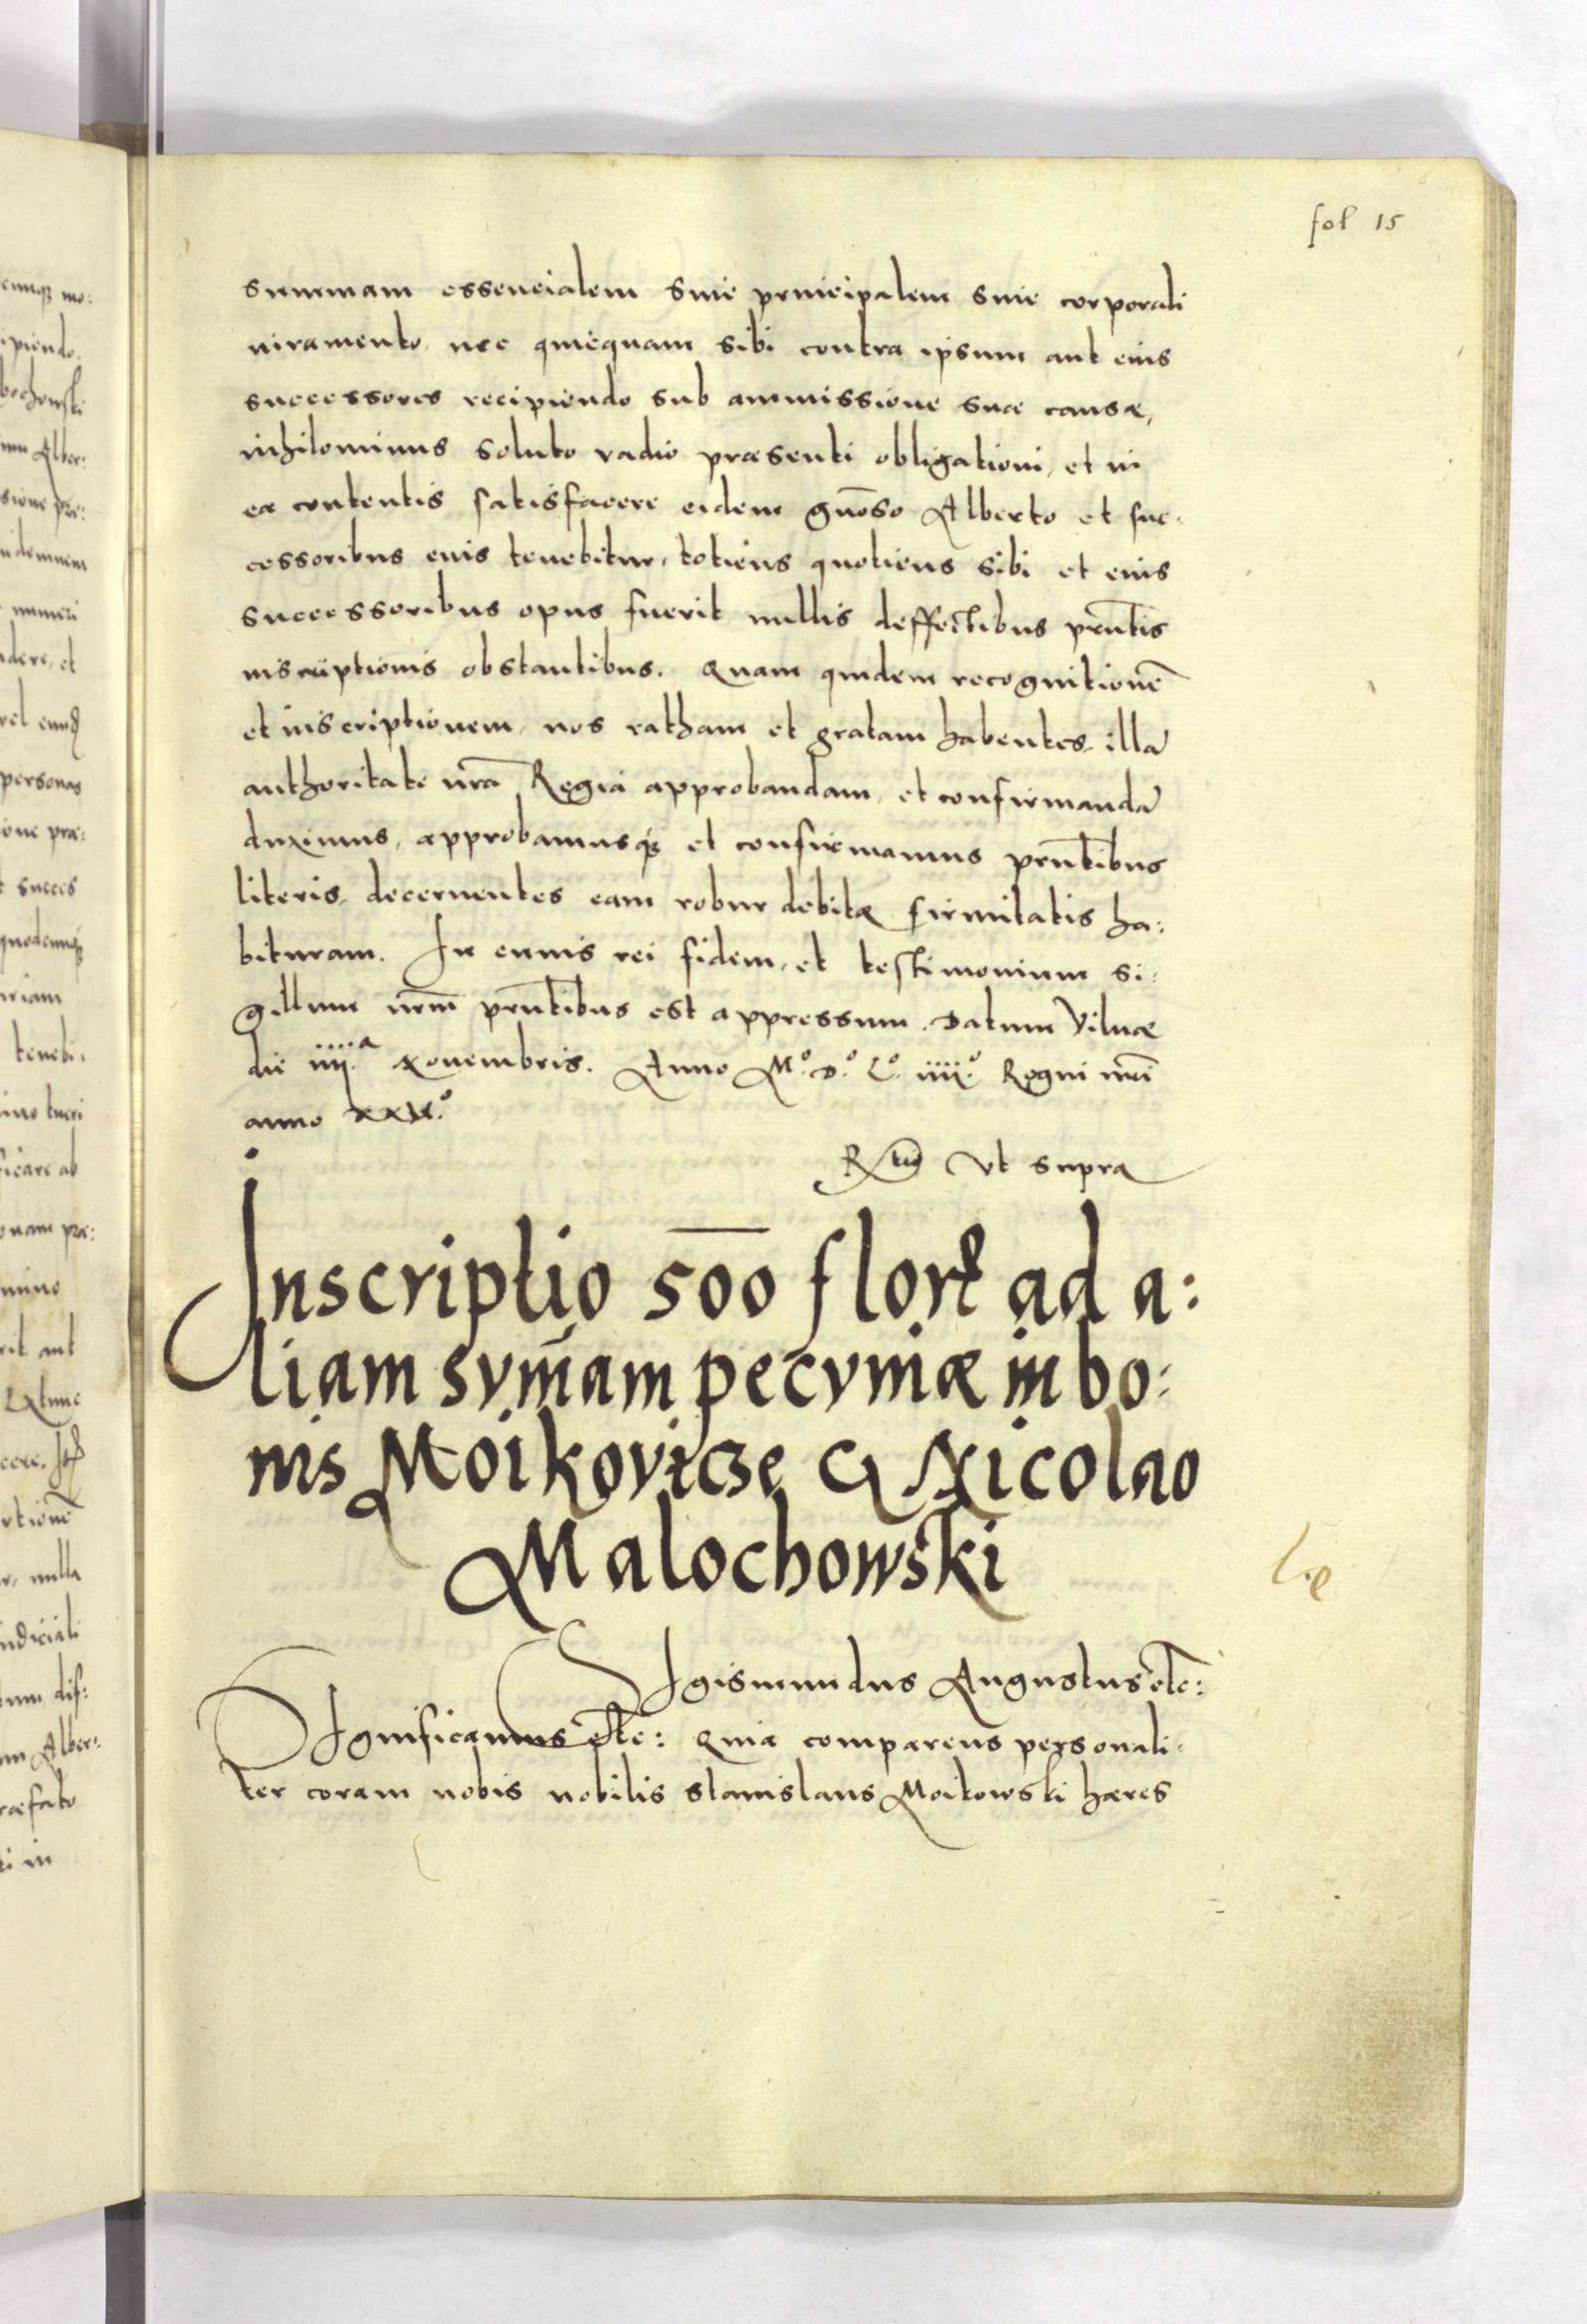 fol 15
summam essencialem sine principalem sine corporali
iuramento, nec quicquam sibi contra ipsum aut eius
successores recipiendo sub ammissione suae causae,
nihilominus soluto vadio praesenti obligationi, et in
ea contentis satisfacere eidem gnōso Alberto et suc:
cessoribus euis tenebitur, totiens quotiens sibi et euis
successoribus opus fuerit nullis deffectibus prn̄tis
inscriptionis obstantibus. Quam quidem recognitionē
et inscriptionem, nos ratham et gratam habentes, illā
authoritate nrā Regia approbandam, et confirmandā
duximus, approbamusq₃ et confirmamus prn̄tibus
literis, decernentes eam robur debitae firmitatis ha:
bituram. In cuius rei fidem, et testimonium si:
gillum nrm̄ prn̄tibus est appressum. Datum Vilnae
die iiii.ª Novembris. Anno M.º D.º L.º iiii.º Regni nrī
anno xxv.º
Rtio Vt supra
Inscriptio 500 flor ad a:
liam sym̄am pecyniae in bo:
nis Moikovicze & Nicolao
Malochowski
Le
Sigismundus Augustus etc:
Significamus etc: Quia comparens personali:
ter coram nobis nobilis Stanislaus Moikowski haeres